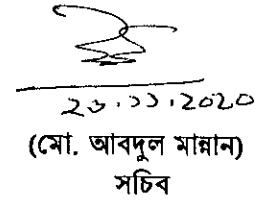 ২৩.১১.২০২০
(মো. আবদুল মান্নান)
সচিব